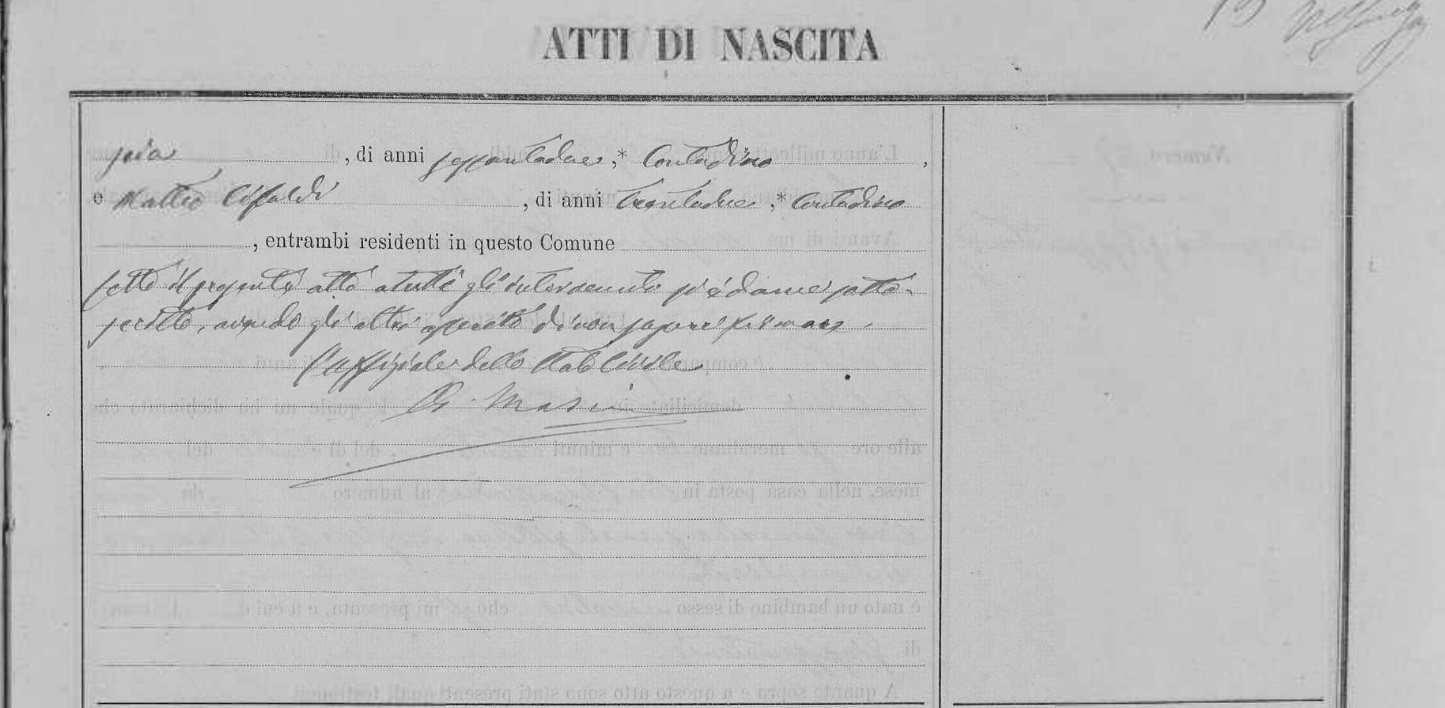 ATTI DI NASCITA
, di anni sessantadue ,* Contadino ,
e Matteo Cifaldi , di anni trentadue ,* Contadino
, entrambi residenti in questo Comune
letto il presente atto a tutti gl'intervenuti si è da me sotto-
scritto, avendo gli altri asserito di non sapere firmare.
L'uffiziale dello Stato Civile
De Masi